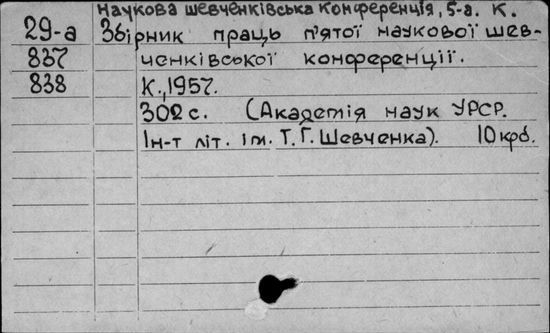 Наукова шевченківська конференція, 5-а. К.
29-а Збірник праць п'ятої наукової шев-
837 ченківської конференції.
838 К., 1957.
302 с. (Академія наук УРСР.
Ін-т літ. ім. Т.Г. Шевченка). 10 крб.